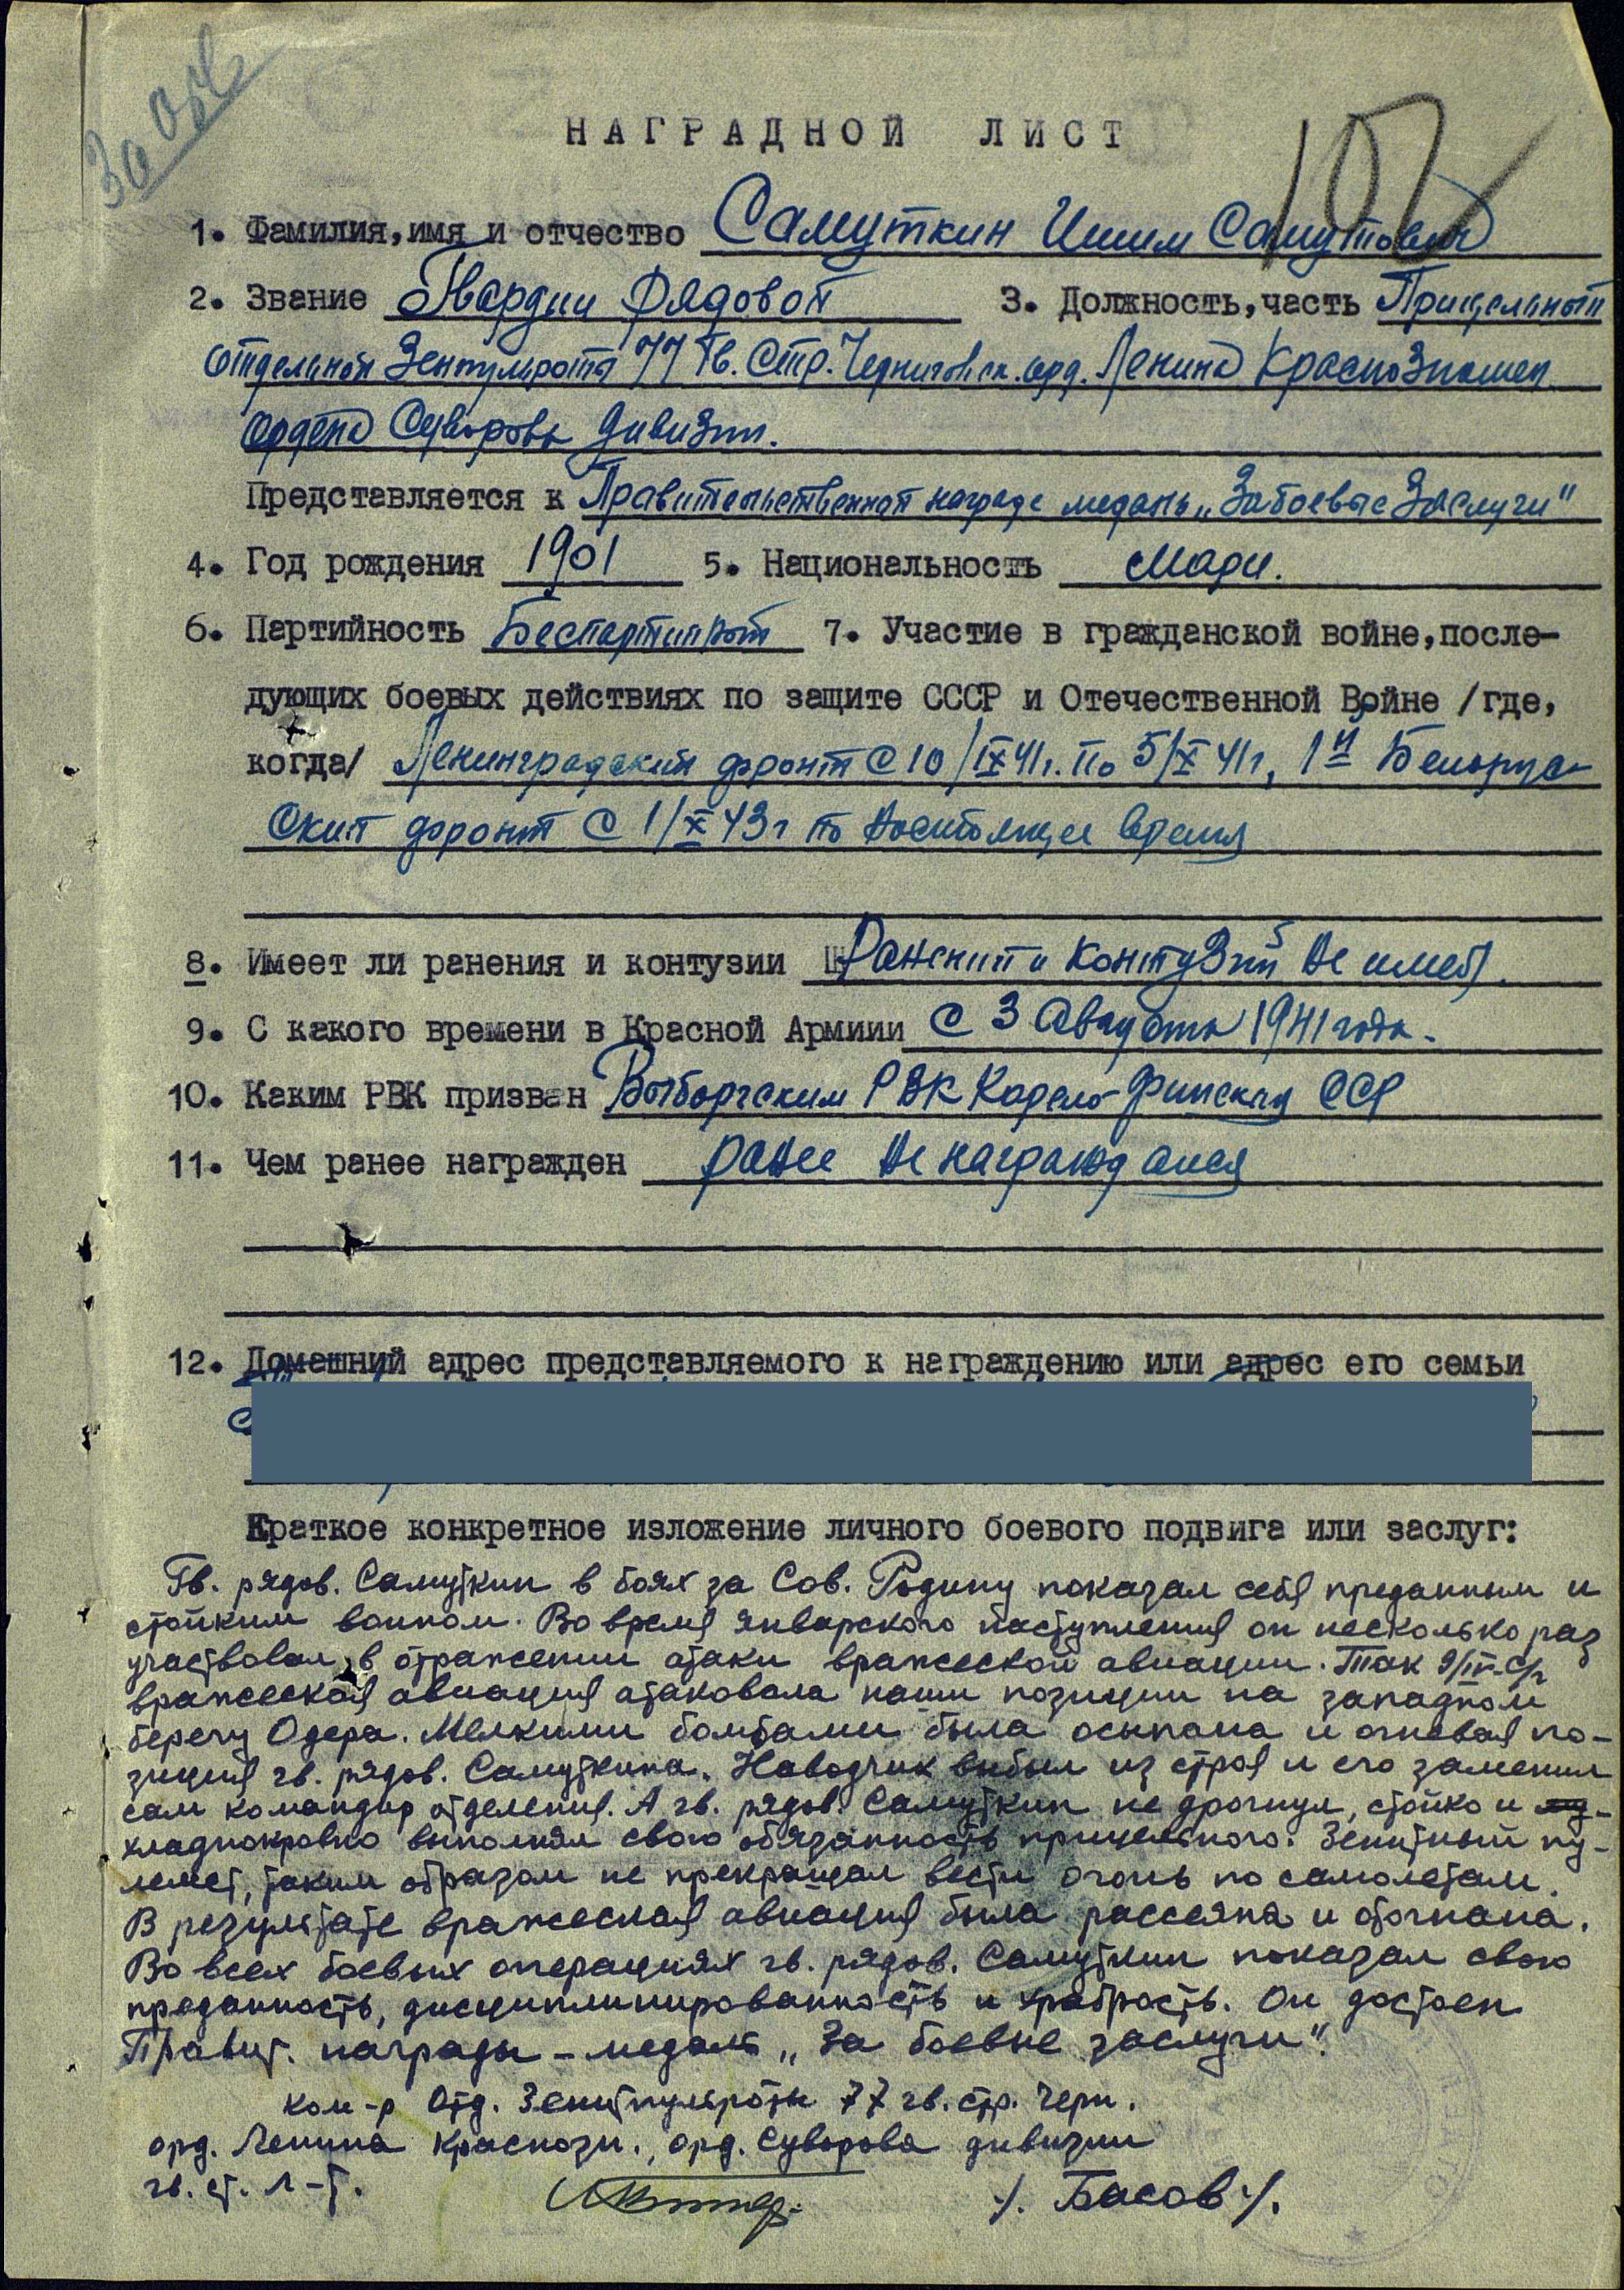 За отв
102
НАГРАДНОЙ ЛИСТ
1. Фамилия, имя и отчество Самуткин Ишим Самутович
2. Звание Гвардии Рядовой 3. Должность, часть Прицельный
отдельной Зенпульроты 77 Гв. Стр. Черниговск. орд. Ленина Краснознамен
ордена Суворова дивизии.
Представляется к Правительственной награде медаль „За боевые Заслуги"
4. Год рождения 1901 5. Национальность мари.
6. Партийность Беспартийный 7. Участие в гражданской войне, после-
дующих боевых действиях по защите СССР и Отечественной Войне /где,
когда/ Ленинградский фронт с 10/IX 41г. по 5/X 41г, 1й Белорус-
ский фронт с 1/X 43г по настоящее время
8. Имеет ли ранения и контузии Ранений и контузий не имеет.
9. С какого времени в Красной Армиии с 3 Августа 1941 года.
10. Каким РВК призван Выборгским РВК Карело-Финская ССР
11. Чем ранее награжден ранее не награждался
12. Домашний адрес представляемого к награждению или адрес его семьи
Краткое конкретное изложение личного боевого подвига или заслуг:
Гв. рядов. Самуткин в боях за Сов. Родину показал себя преданным и
стойким воином. Во время январского наступления он несколько раз
участвовал в отражении атаки вражеской авиации. Так 9/IV-с/г
вражеская авиация атаковала наши позиции на западном
берегу Одера. Мелкими бомбами была осыпана и огневая по-
зиция гв. рядов. Самуткина. Наводчик выбыл из строя и его заменил
сам командир отделения. А гв. рядов. Самуткин не дрогнул, стойко и
хладнокровно выполнял свою обязанность прицельного. Зенитный пу-
лемет, таким образом не прекращал вести огонь по самолетам.
В результате вражеская авиация была рассеяна и отогнана.
Во всех боевых операциях гв. рядов. Самуткин показал свою
преданность, дисциплинированность и храбрость. Он достоен
Правит. награды - медаль „За боевые заслуги".
ком-р Отд. Зенитпульроты 77 гв. стр. Черн.
орд. Ленина Краснозн., орд. Суворова дивизии
гв. ст. л-т. /. Басов ./.